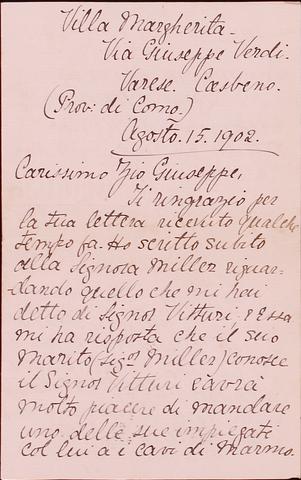 Villa Margherita.
Via Giuseppe Verdi.
Varese. Casbeno.
(Prov: di Como.)
Agosto. 15. 1902.
Carissimo Zio Giuseppe,
Ti ringrazio per
la tua lettera ricevuto qualche
tempo fa. Ho scritto subito
alla Signora Miller riguar-
-dando quello che mi hai
detto di Signor Vitturi. Essa
mi ha risposta che il suo
marito (Sigor Miller) conosce
il Signor Vitturi e avrá
molto piacere di mandare
uno delle sue impiegati
col lui a i cavi di Marmo.